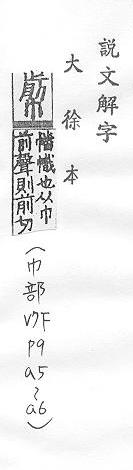 說文解字
大徐本
幡幟也从巾
前聲則前切
（巾部V7F p9 a5~a6）